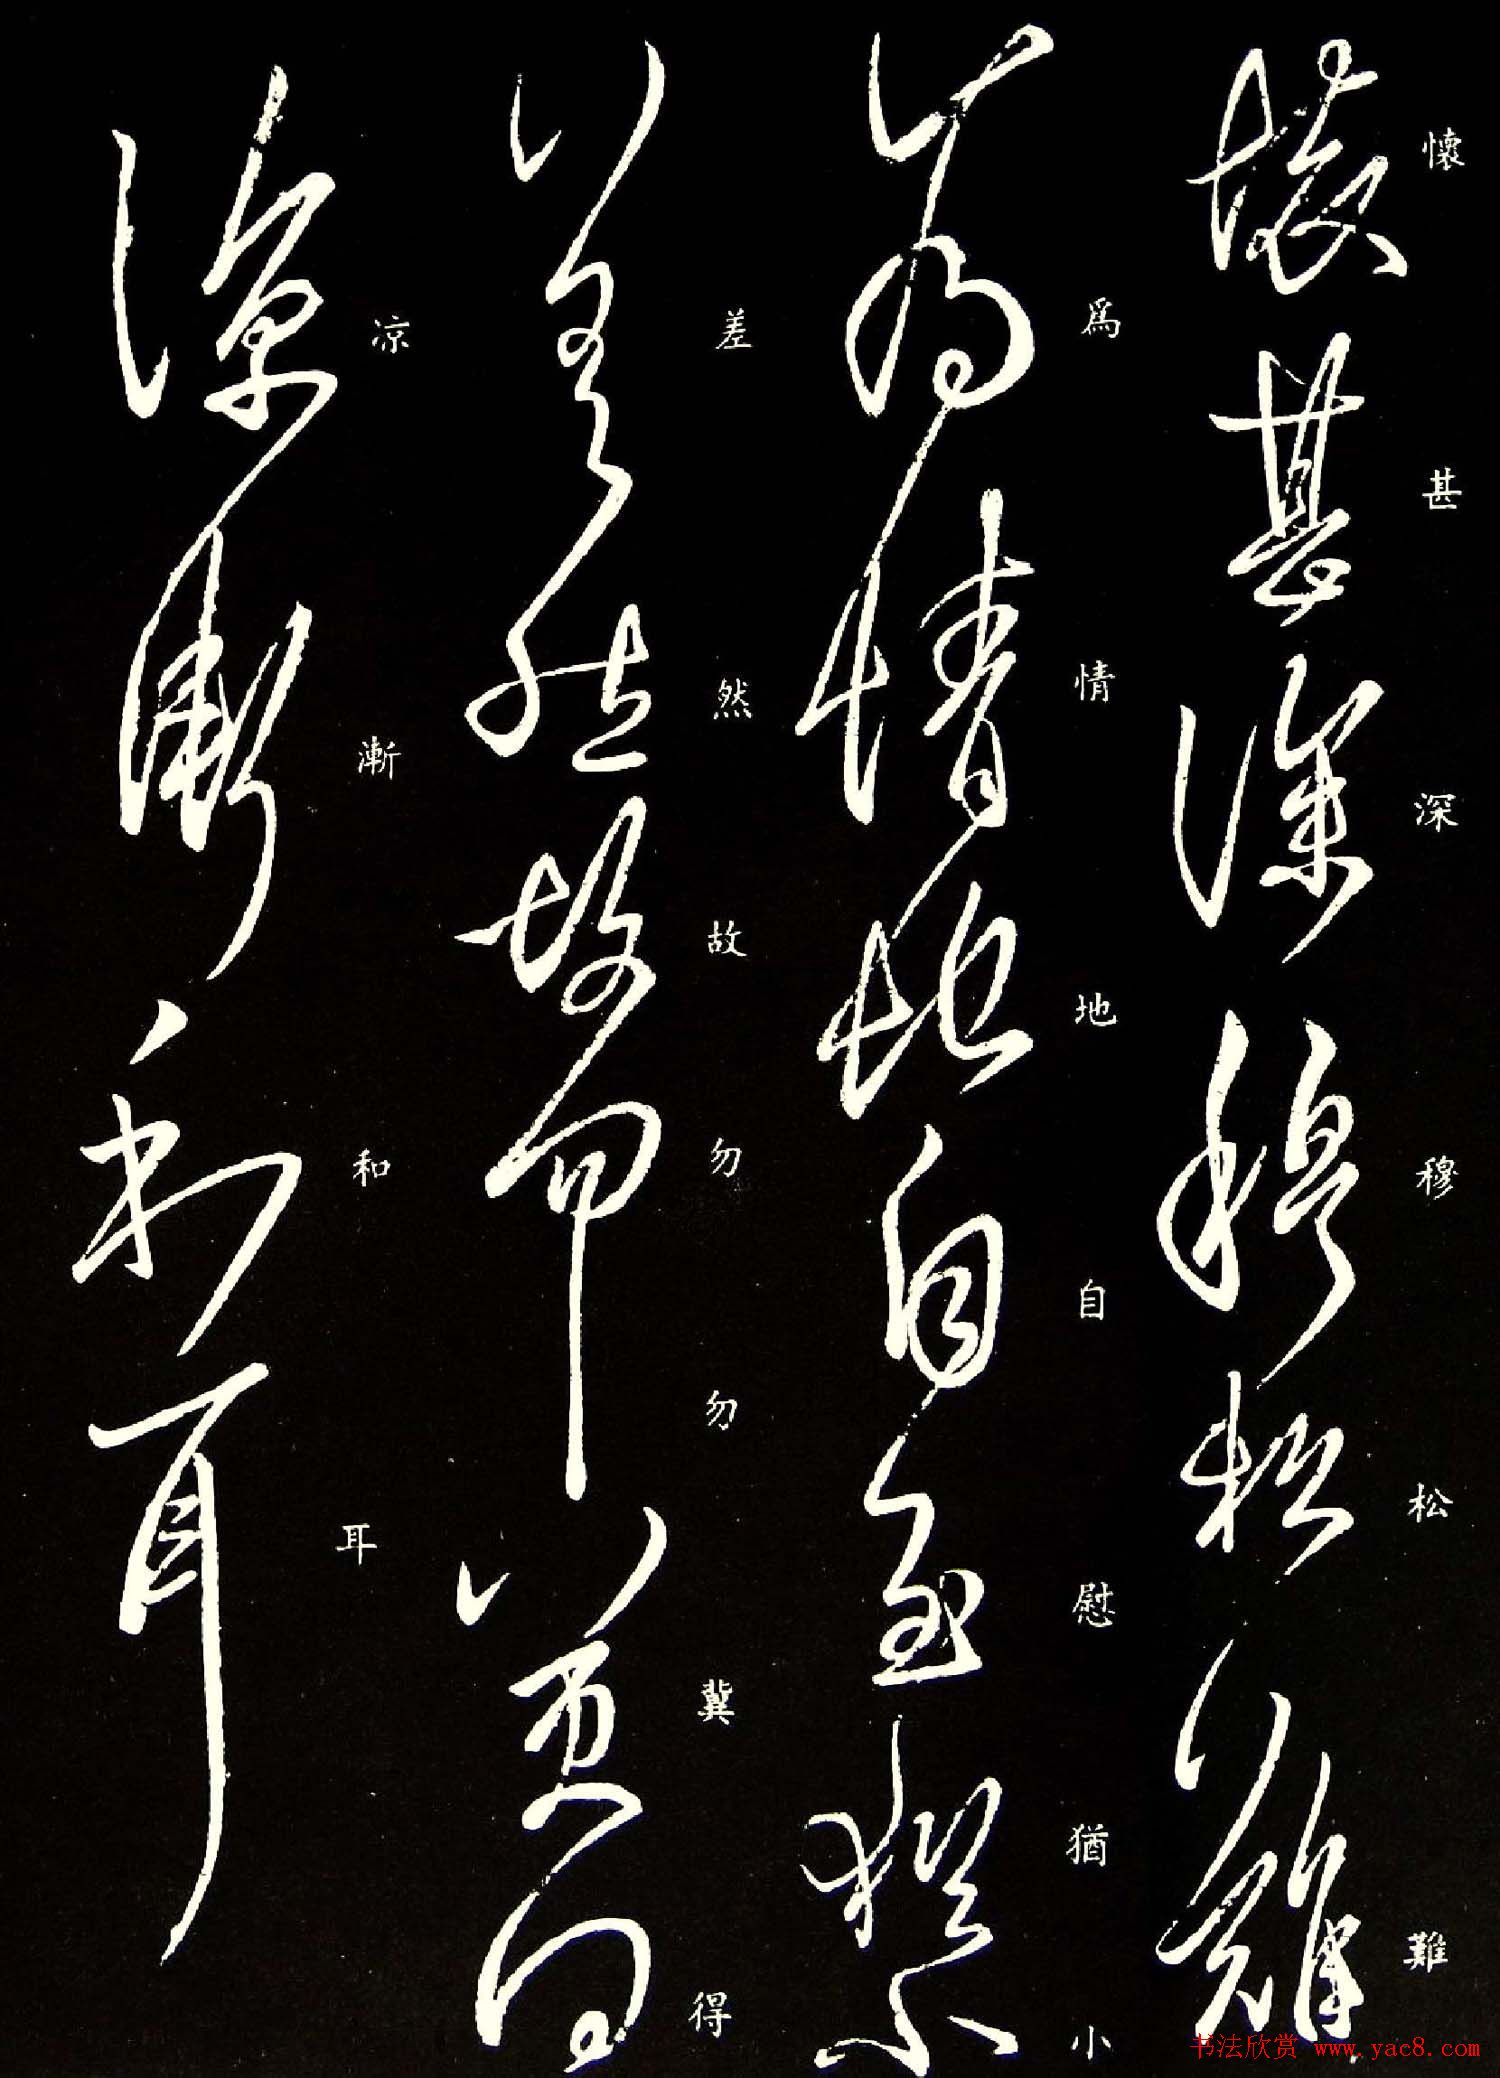 懷甚深穆松難
爲情地自慰猶小
差然故勿勿冀得
凉漸和耳
书法欣赏 www.yac8.com